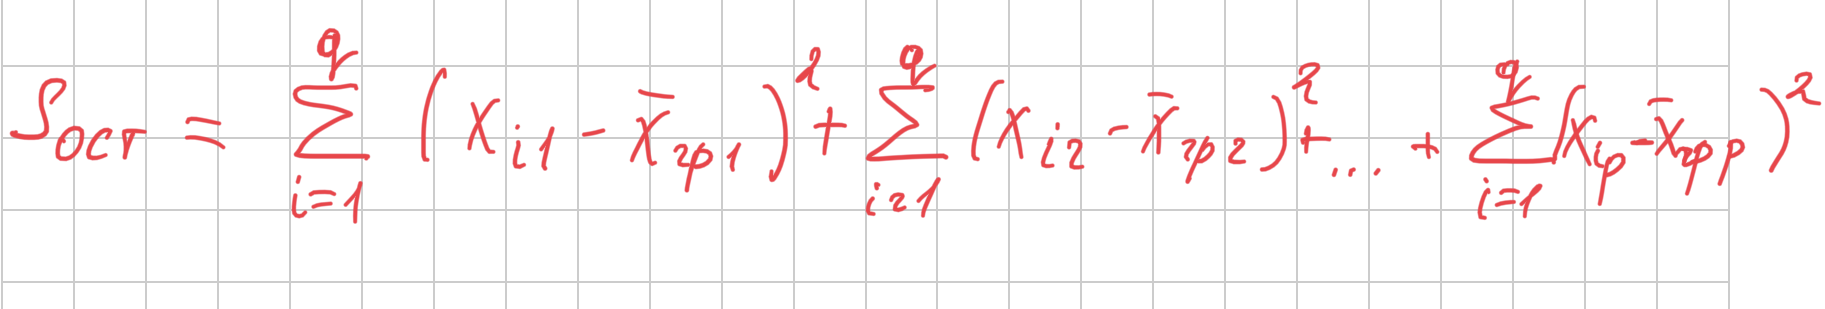 S_{ост} = \sum_{i=1}^{q} (x_{i1} - \bar{x}_{гр1})^2 + \sum_{i=1}^{q} (x_{i2} - \bar{x}_{гр2})^2 + ... + \sum_{i=1}^{q} (x_{ip} - \bar{x}_{грp})^2